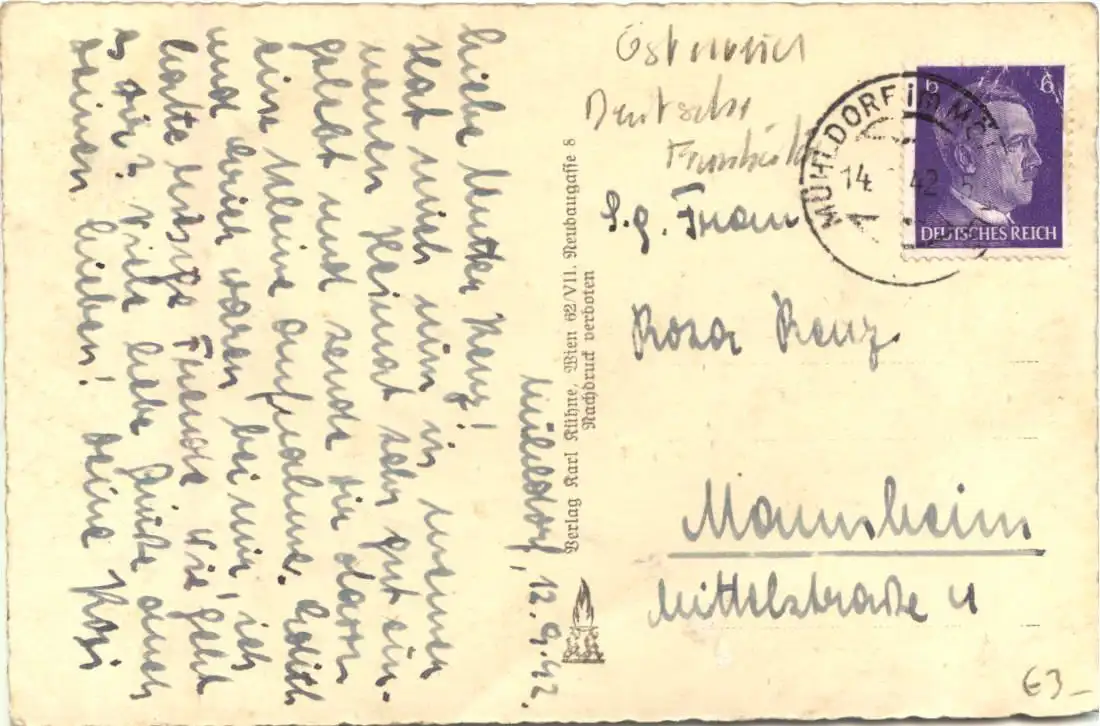 Mühldorf, 12.9.42.
Liebe Mutter Renz!
Hat mich nun in meiner
neuen Heimat sehr gut ein-
gelebt und sende dir darum
eine kleine Aufnahme. Edith
und Erich waren bei mir, ich
hatte riesige Freude. Wie geht
es dir? Viele liebe Grüße auch
deinen Lieben! Deine
Verlag Karl Kühne, Wien 62/VII. Neubaugasse 8
Nachdruck verboten
Österreich
Deutsche
S.g. Frau
Rosa Renz
Mannheim
Mittelstraße 4
MÜHLDORF im MÖ
14 42
6 6
DEUTSCHES REICH
63-